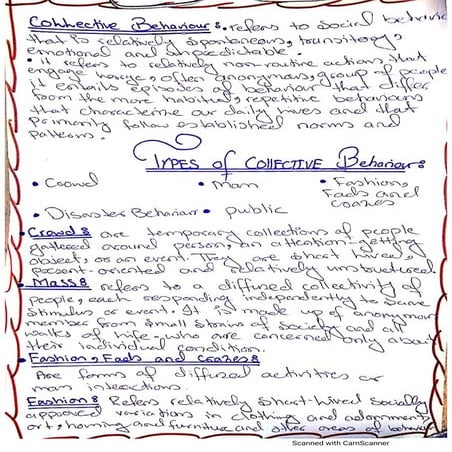 Collective Behaviour: refers to social behavior
that is relatively spontaneous, transitory,
emotional and unpredictable.
• it refers to relatively non-routine actions that
engage large, often anonymous, group of people
it entails episodes of behaviour that differ
from the more habitual, repetitive behaviours
that characterize our daily lives and that
primarily follow established norms and
patterns.
TYPES of COLLECTIVE Behaviour:
• Crowd • Mass • Fashion, Fads and crazes
• Disaster Behaviour • public
• Crowd: are temporary collections of people
gathered around person, an attention-getting
object, or an event. They are short lived,
present-oriented and relatively unstructured.
• Mass: refers to a diffused collectivity of
people, each responding independently to same
stimulus or event. It is made up of anonymous
member from small strains of society and all
walks of life who are concerned only about
their individual condition.
• Fashion, Fads and Crazes:
Are forms of diffused activities or
mass interactions.
Fashion: Refers relatively short-lived socially
approved variations in clothing and adornment,
art, housing and furniture and other areas of behavior
Scanned with CamScanner